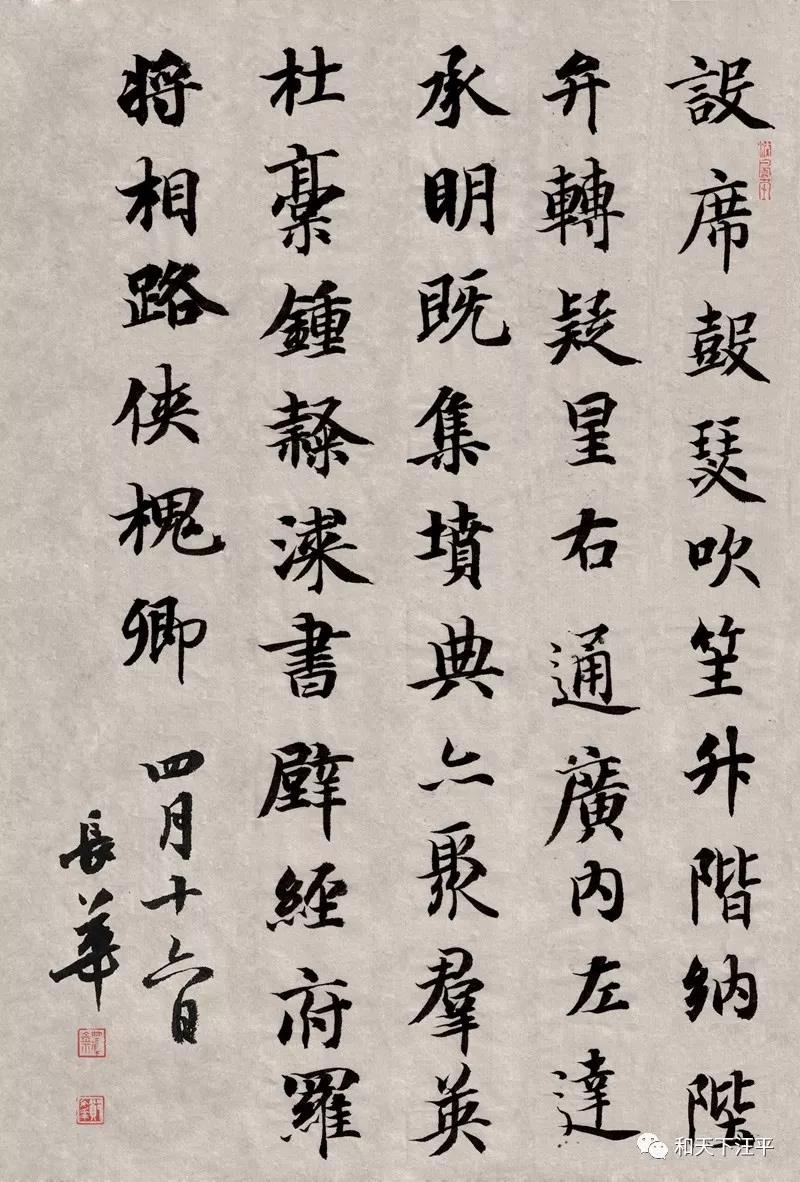 設席鼓瑟吹笙升階納陛
弁轉疑星右通廣內左達
承明既集墳典亦聚羣英
杜稾鍾隸漆書壁經府羅
将相路俠槐卿
四月十六日
長華
和天下汪平